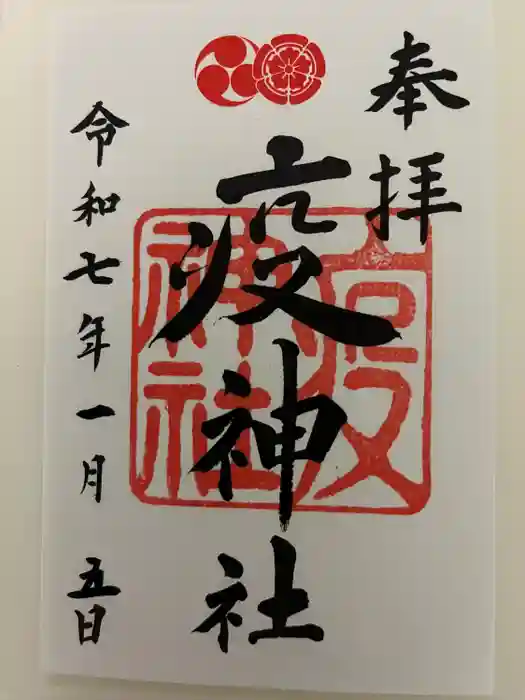 奉拝
疫神社
疫神社
令和七年一月五日